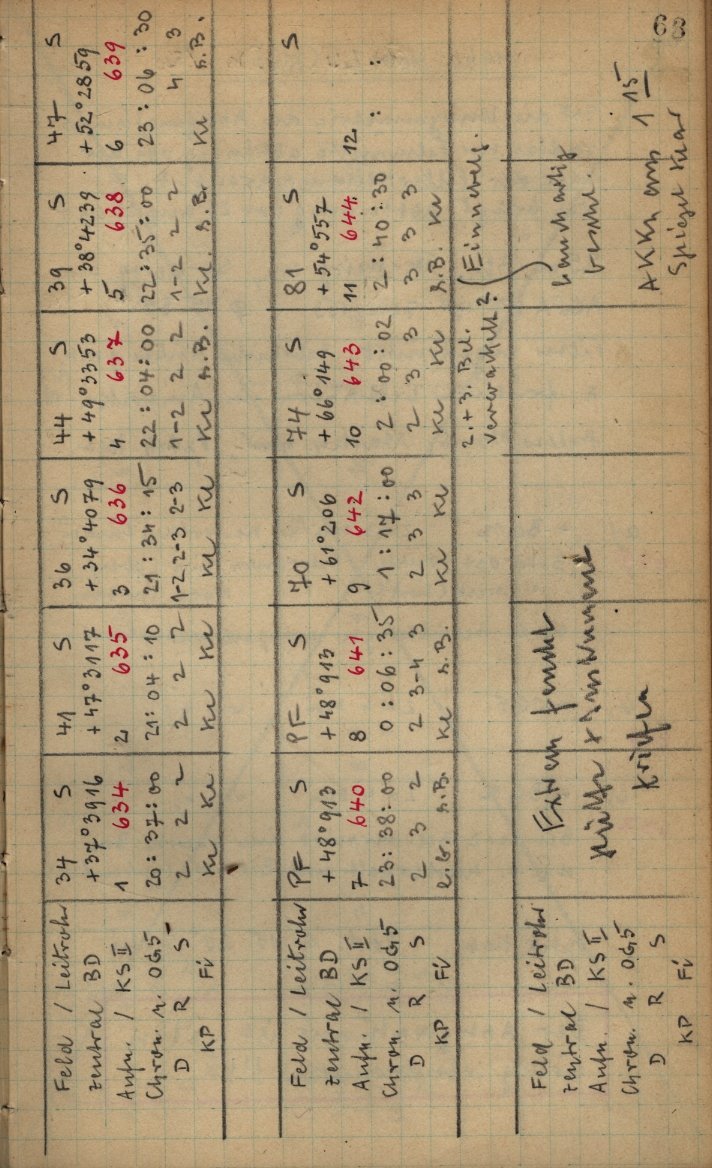 68
Feld / Leitrohr 34 S 41 S 36 S 44 S 39 S 47 S
Zentral BD +37°3916 +47°3117 +34°4079 +49°3353 +38°4239 +52°2859
Aufn. / KS II 1 634 2 635 3 636 4 637 5 638 6 639
Chron. n. OG5 20:37:00 21:04:10 21:34:15 22:04:00 22:35:00 23:06:30
D R S 2 2 2 2 2 2 1-2 2-3 2-3 1-2 2 2 1-2 2 2 4 3
KP Fi Kl Kl Kl Kl Kl Kl Kl s.B. Kl. s.B. Kl s.B.
Feld / Leitrohr PF S PF S 70 S 74 S 81 S S
Zentral BD +48°913 +48°913 +61°206 +66°149 +54°557
Aufn. / KS II 7 640 8 641 9 642 10 643 11 644 12
Chron. n. OG5 23:38:00 0:06:35 1:17:00 2:00:02 2:40:30 : :
D R S 2 3 2 2 3-4 3 2 3 3 2 3 3 3 3 3
KP Fi s.B. Kl s.B. Kl Kl Kl Kl s.B. Kl
2.+3. Bel.
verwackelt?
Feld / Leitrohr
Zentral BD
Aufn. / KS II
Chron. n. OG5
D R S
KP Fi
Extrem feucht
Instrument
AKKn aus 1 15
Spiegel klar